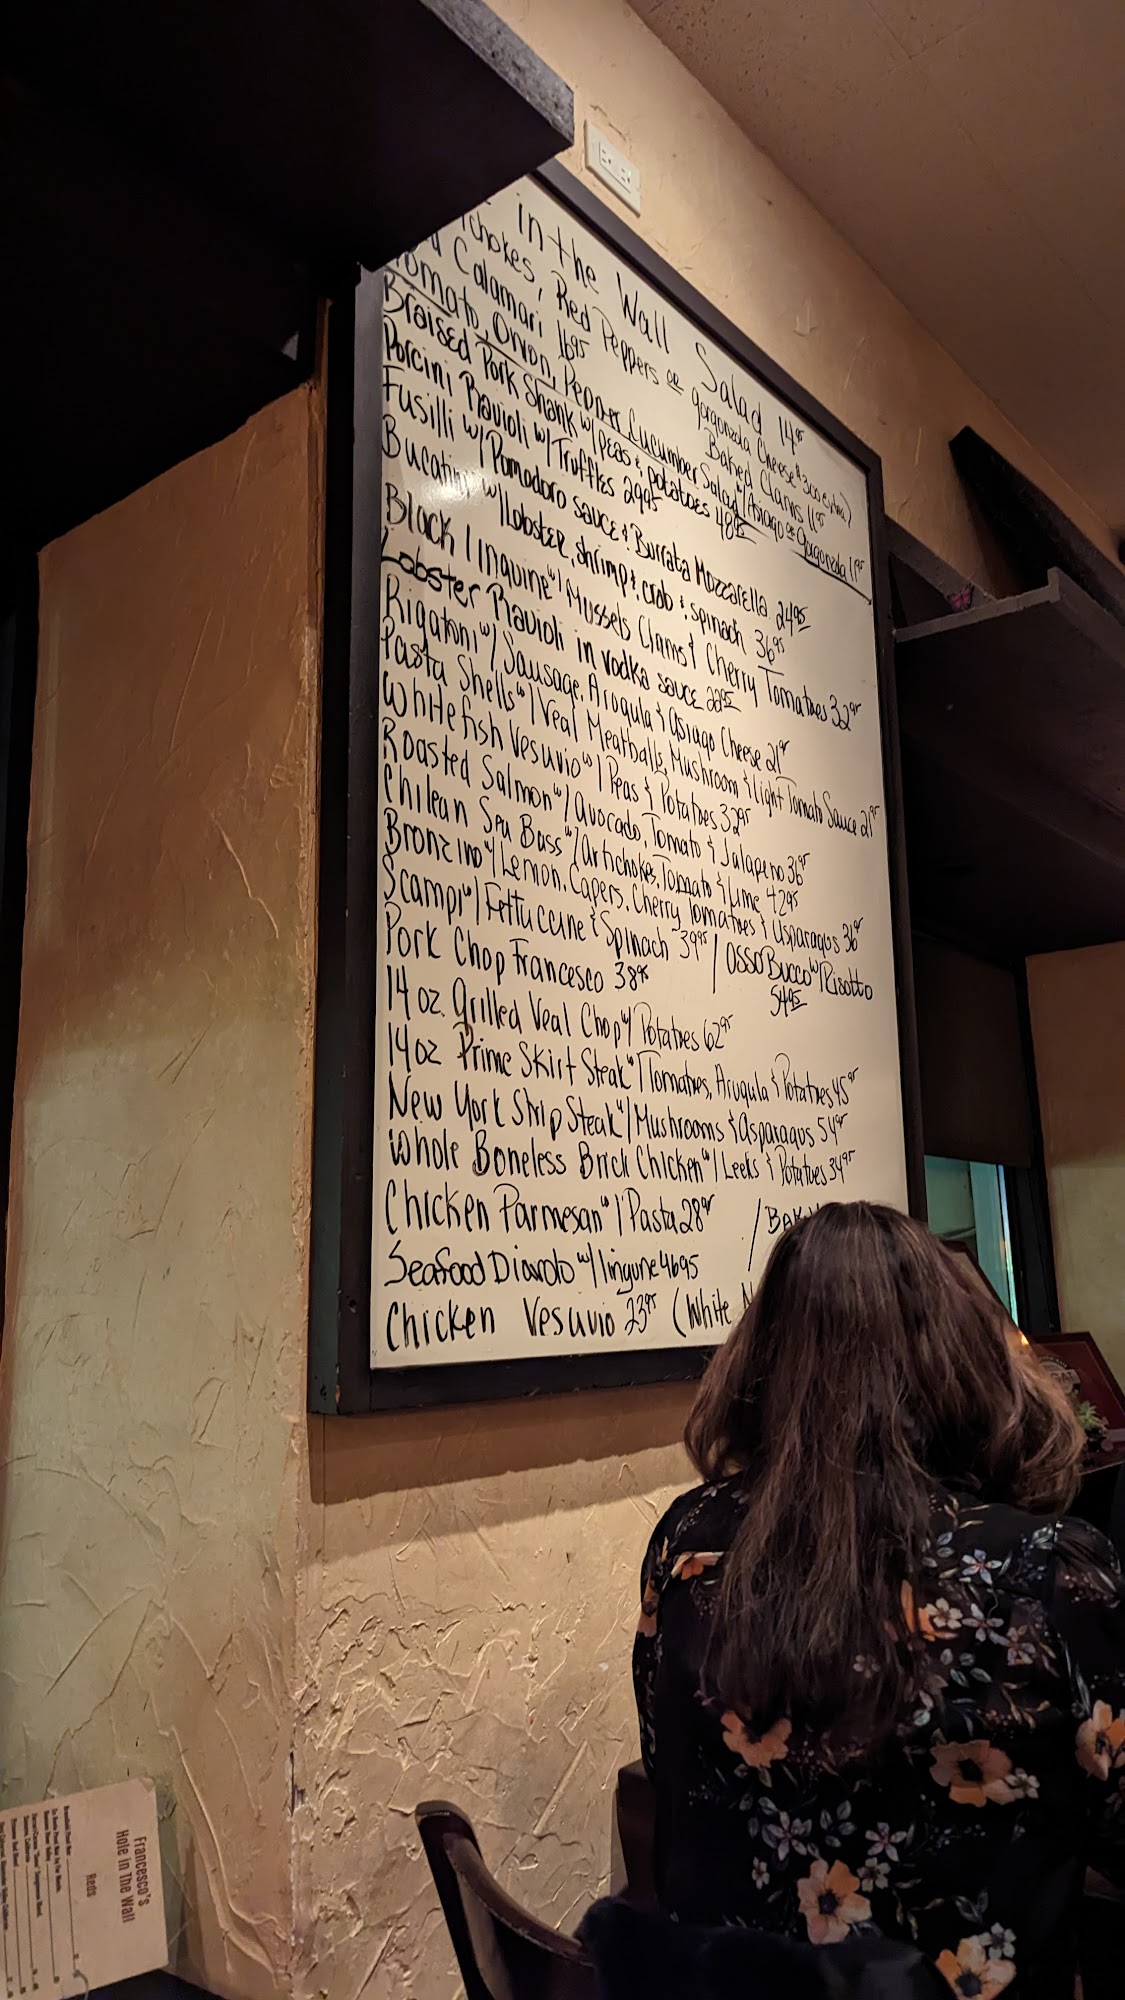 in the Wall Salad 14.95
Red Peppers or gorgonzola Cheese $3.00 extra)
Calamari 16.95 Baked Clams 11.95
Tomato, Onion, Pepper, Cucumber Salad w/Asiago or Gorgonzola 11.95
Braised Pork Shank w/peas & potatoes 48.95
Porcini Ravioli w/Truffles 29.95
Fusilli w/Pomodoro sauce & Burrata Mozzarella 24.95
Bucatini w/lobster, shrimp, crab & spinach 36.95
Black linguine w/Mussels Clams & Cherry Tomatoes 32.95
Lobster Ravioli in vodka sauce 22.95
Rigatoni w/Sausage, Arugula & asiago Cheese 21.95
Pasta Shells w/Veal Meatballs, Mushroom & light Tomato Sauce 21.95
Whitefish Vesuvio w/Peas & Potatoes 32.95
Roasted Salmon w/Avocado, Tomato & Jalapeno 36.95
Chilean Sea Bass w/Artichokes, Tomato & lime 42.95
Bronzino w/Lemon, Capers, Cherry Tomatoes & Asparagus 36.95
Scampi w/Fettuccine & Spinach 39.95 / OSSO Bucco w/Risotto 54.95
Pork Chop Francesco 38.95
14 oz. Grilled Veal Chop w/Potatoes 62.95
14 oz Prime Skirt Steak w/Tomatoes, Arugula & Potatoes 45.95
New York Strip Steak w/Mushrooms & Asparagus 54.95
Whole Boneless Brick Chicken w/Leeks & Potatoes 34.95
Chicken Parmesan w/Pasta 28.95
Seafood Diavolo w/lingune 46.95
Chicken Vesuvio 23.95 (White
Francesco's
Hole in The Wall
Reds